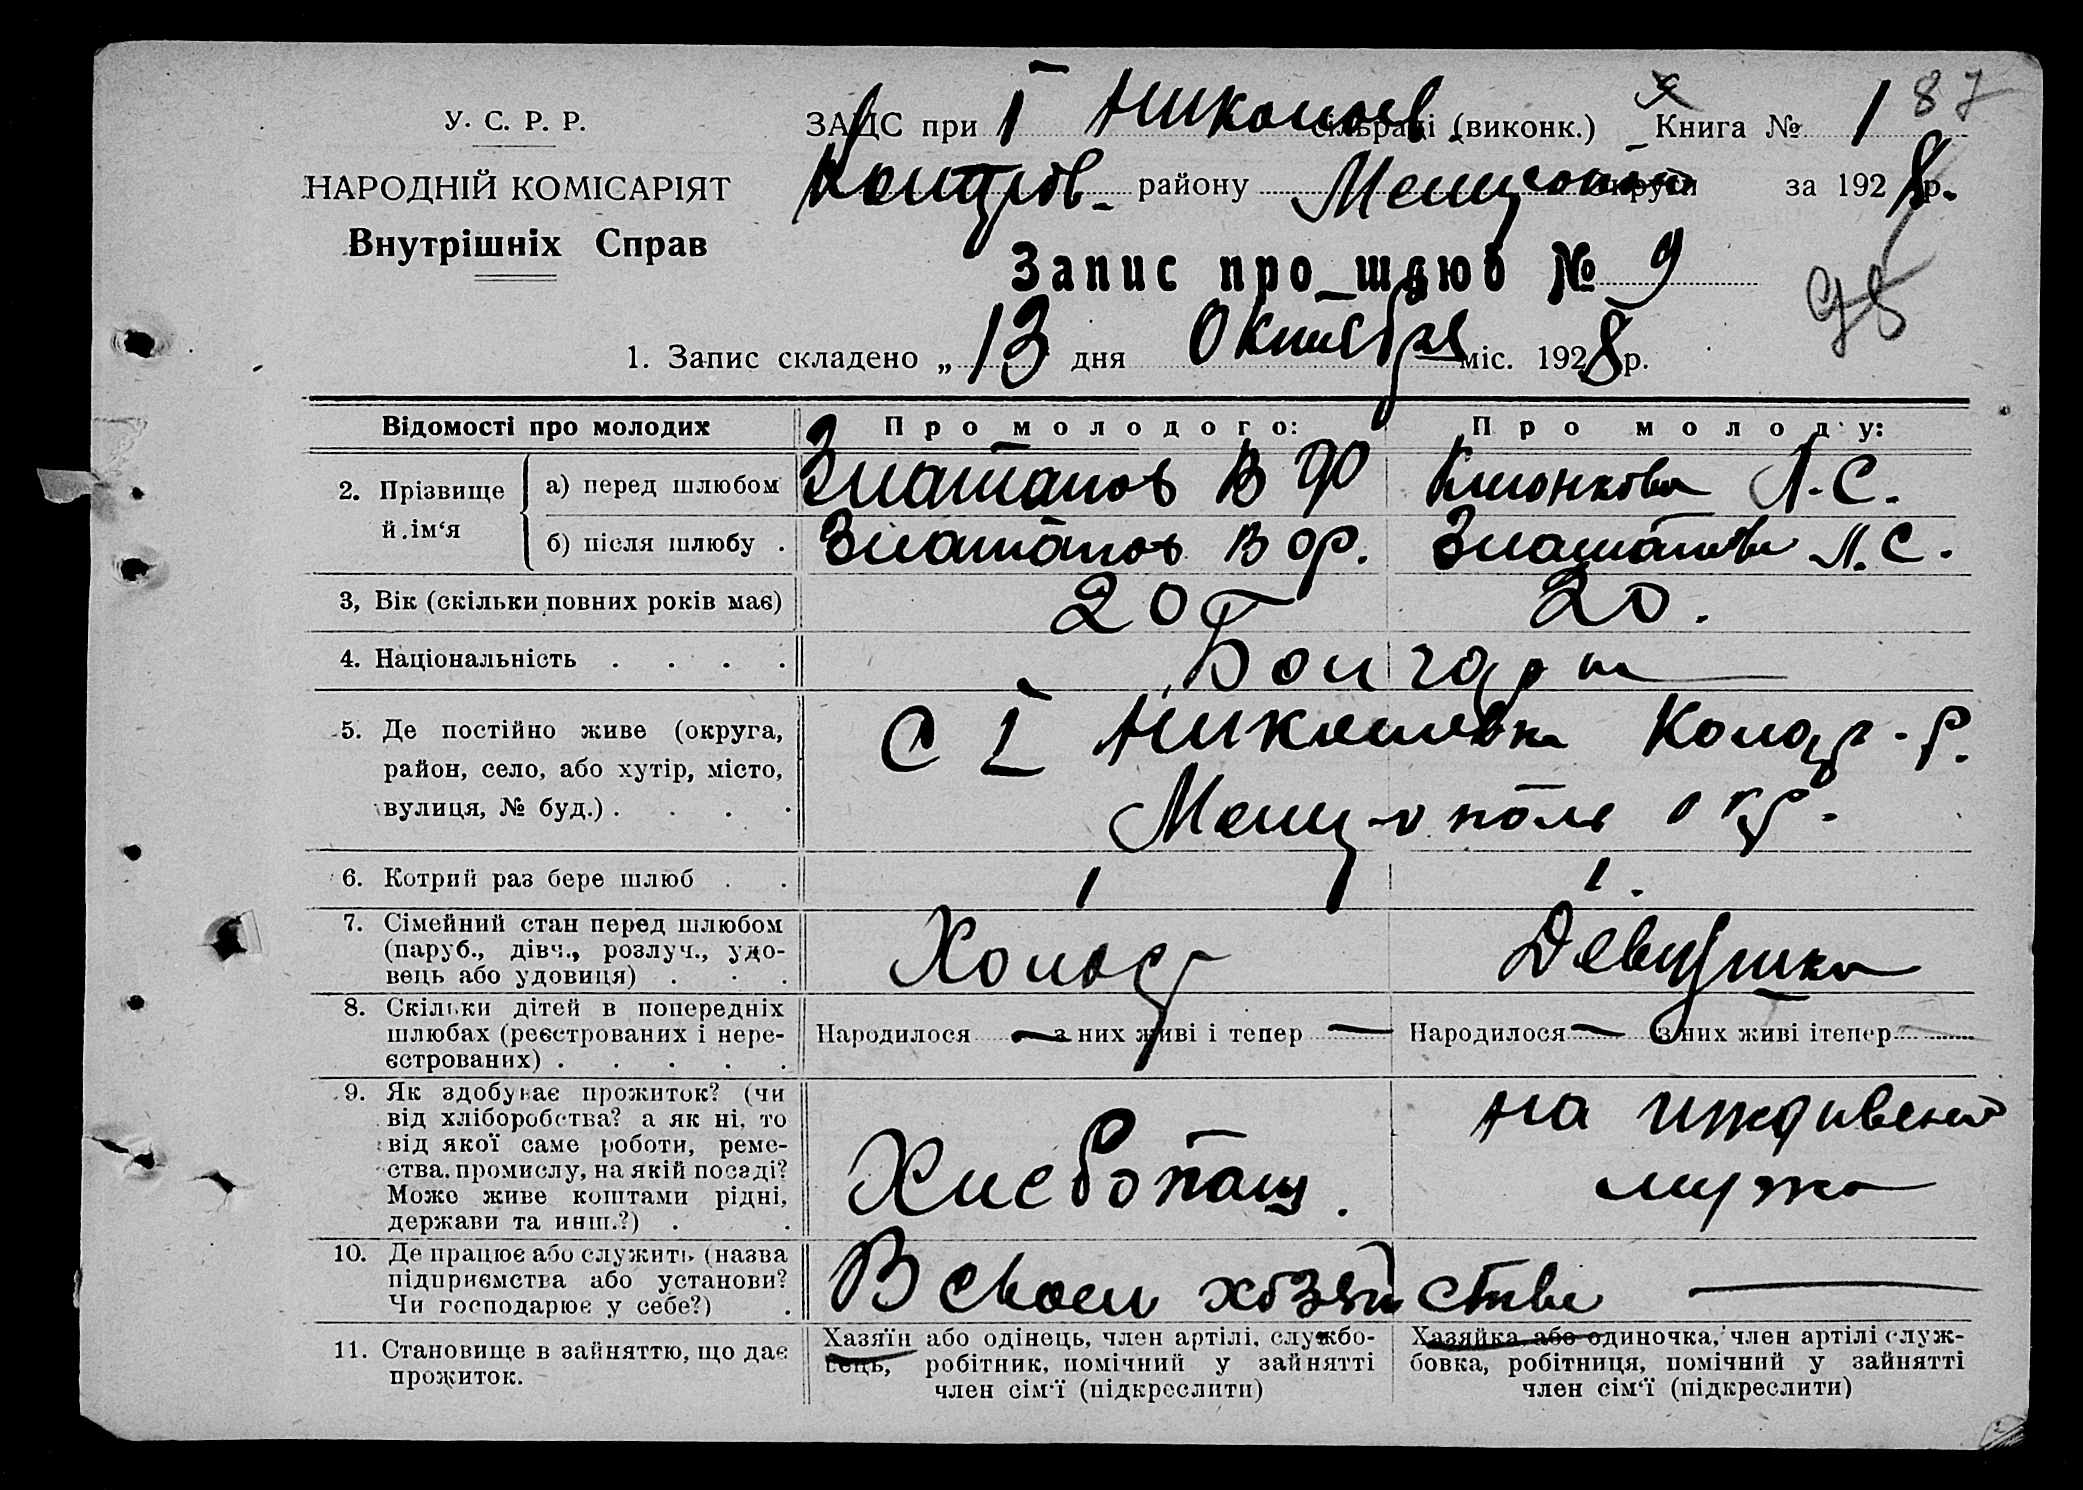 87
У. С. Р. Р.
ЗАЦС при I Николаев. сільраді (виконк.) Книга № 1
НАРОДНІЙ КОМІСАРІЯТ
району округи за 1928 р.
Внутрішніх Справ
Запис про шлюб № 9
95
1. Запис складено „ 13 дня Октября міс. 1928 р.
Відомості про молодих Про молодого: Про молоду:
2. Прізвище й ім‘я
а) перед шлюбом Златанов В Ф Л. С.
б) після шлюбу . Златанов В Ф. Златанова Л. С.
3, Вік (скільки повних років має) 20 20.
4. Національність . . . . Болгары
5. Де постійно живе (округа, С I Николаевка Колар. р.
район, село, або хутір, місто, Мелитополь окр.
вулиця, № буд.) . . . .
6. Котрий раз бере шлюб . . 1 1.
7. Сімейний стан перед шлюбом
(паруб., дівч., розлуч., удо- Холост Девушка
вець або удовиця) . . .
8. Скільки дітей в попередніх
шлюбах (реєстрованих і нере- Народилося — з них живі і тепер — Народилося — з них живі ітепер
єстрованих) . . . . .
9. Як здобуває прожиток? (чи на иждивении
від хліборобства? а як ні, то
від якої саме роботи, реме-
ства, промислу, на якій посаді? Хлебопаш. мужа
Може живе коштами рідні,
держави та инш.?) . .
10. Де працює або служить (назва
підприємства або установи? В своем хозяйстве —
Чи господарює у себе?) .
11. Становище в зайняттю, що дає
прожиток.
Хазяїн або одінець, член артілі, службо-
вець, робітник, помічний у зайнятті
член сім‘ї (підкреслити)
Хазяйка або одиночка, член артілі служ-
бовка, робітниця, помічний у зайнятті
член сім‘ї (підкреслити)